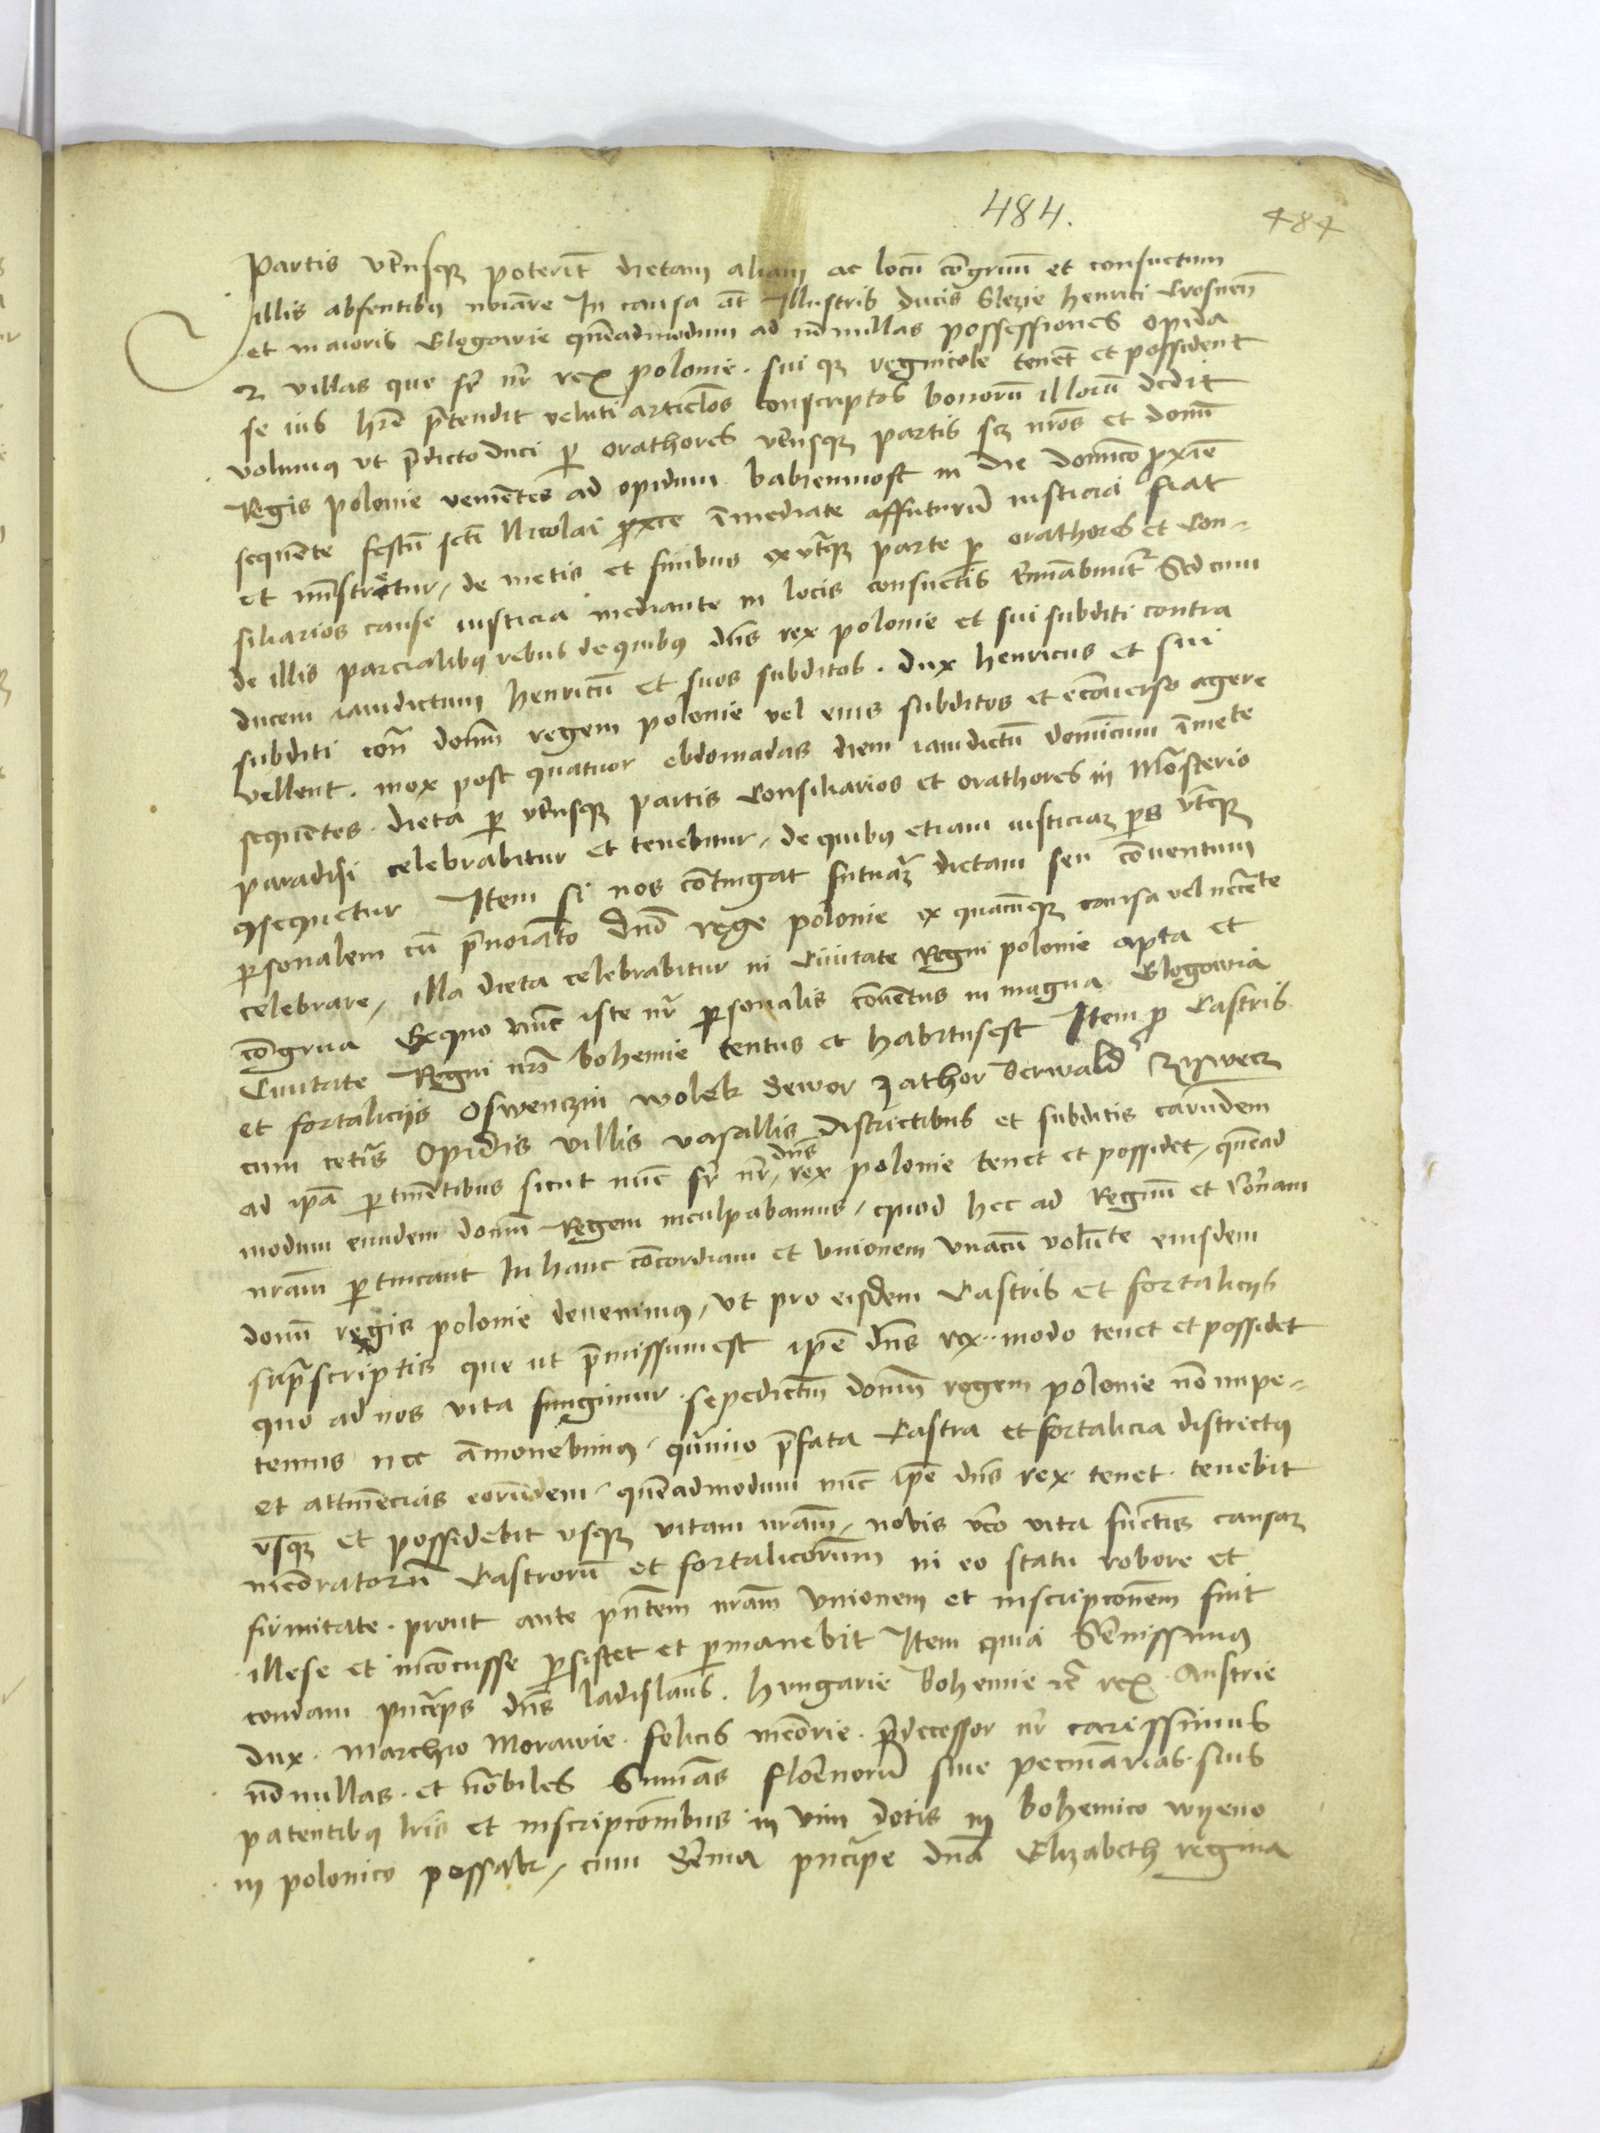 484.
484
Partis utriusq̃ poterit dietam aliam ac locũ cõgruũ et consuetum
illis absentibꝰ noĩare In causa aũt Illustris ducis Slezie henrici Crosneñ
et maioris Glogowie quẽadmodum ad nõnullas possessiones opida
et villas que fr̃ nr̃ rex polonie. sui q̃ regnicole tenẽt et possident
se ius hr̃e p̃tendit veluti articlos conscriptos bonorũ illorũ dedit
volumꝰ ut p̃dicto duci p̃ orathores utriusq̃ partis sc̃ nr̃os et domĩ
Regis polonie venientes ad opidum babienmost in die dominico p̃xĩe
sequente festũ scti Nicolai p̃xie ĩmediate affuturũ iusticia fiat
et mĩstretur, de metis et finibus ex utraq̃ parte p̃ orathores et Con-
siliarios cause iusticia mediante in locis consuetis t̃minabunt̃ Sed cum
de illis parcialibꝰ rebus de quibꝰ dñs rex polonie et sui subditi contra
ducem iamdictum henricũ et suos subditos. dux henricus et sui
subditi cont̃ domĩ regem polonie vel eius subditos et ecõuerso agere
vellent. mox post quatuor ebdomadas diem iamdictũ dominicum ĩmete
sequentes. dieta p̃ utriusq̃ partis Consiliarios et orathores in Mõasterio
paradisi celebrabitur et tenebitur, de quibꝰ etiam iusticiaȝ p̃s utraq̃
ꝯsequetur Item si nos cõtingat futuraȝ dietam seu cõuentum
p̃sonalem cũ p̃noĩato dnõ rege polonie ex quacũq̃ causa vel nec̃cẽte
celebrare, illa dieta celebrabitur in Ciuitate Regni polonie apta et
cõgrua Ex quo nũc iste nr̃ p̃sonalis cõuẽtus in magna Glogowia
Ciuitate Regni nr̃i bohemie tentus et habitus est Item p̃ Castris
et fortaliciis Oswenczin wolek Sewor zathor Berwald zywecz
cum cetĩs Opidis villis vasallis districtibus et subditis earũdem
ad ip̃a p̃tinẽtibus sicut nũc fr̃ nr̃, dñs rex polonie tenet et possidet, quẽad
modum eundem domĩ Regem inculpabamus, quod hec ad Regnũ et Coronam
nr̃am p̃tineant In hanc cõcordiam et unionem unacũ volũte eiusdem
domĩ regis polonie deuenimꝰ, ut pro eisdem Castris et fortaliciis
sup̃scriptis que ut p̃missum est ip̃e dñs rex. modo tenet et possidet
quo ad nos vita fungimur. sepedictm̃ domĩ regem polonie nõ impe-
temus nec ãmonebimꝰ. quĩmo p̃fata Castra et fortalicia districtꝰ
et attinẽcias eorũdem. quẽadmodum nũc ip̃e dñs rex. tenet. tenebit
usq̃ et possidebit usq̃ vitam nr̃am, nobis ũo vita fũctis causaȝ
memoratorũ Castrorũ et fortaliciorũm in eo statu robore et
firmitate. prout ante pñtem nr̃am Unionem et inscripcõnem fuit
illese et incõcusse p̃sistet et p̃manebit Item quia Serenissimꝰ
condam pñceps dñs ladislaus. Hungarie Bohemie etc̃ rex. Austrie
dux. Marchio Morauie. felicis mẽorie. p̃decessor nr̃ carissimus
nõnullas. et nõbiles Sum̃as florenorũ siue pecuniarias. suis
patentibꝰ lr̃is et inscripcõnibus in vim dotis in bohemico wyeno
in polonico possahr, cum Ser̃ma pñcipe dnã Elizabeth regina